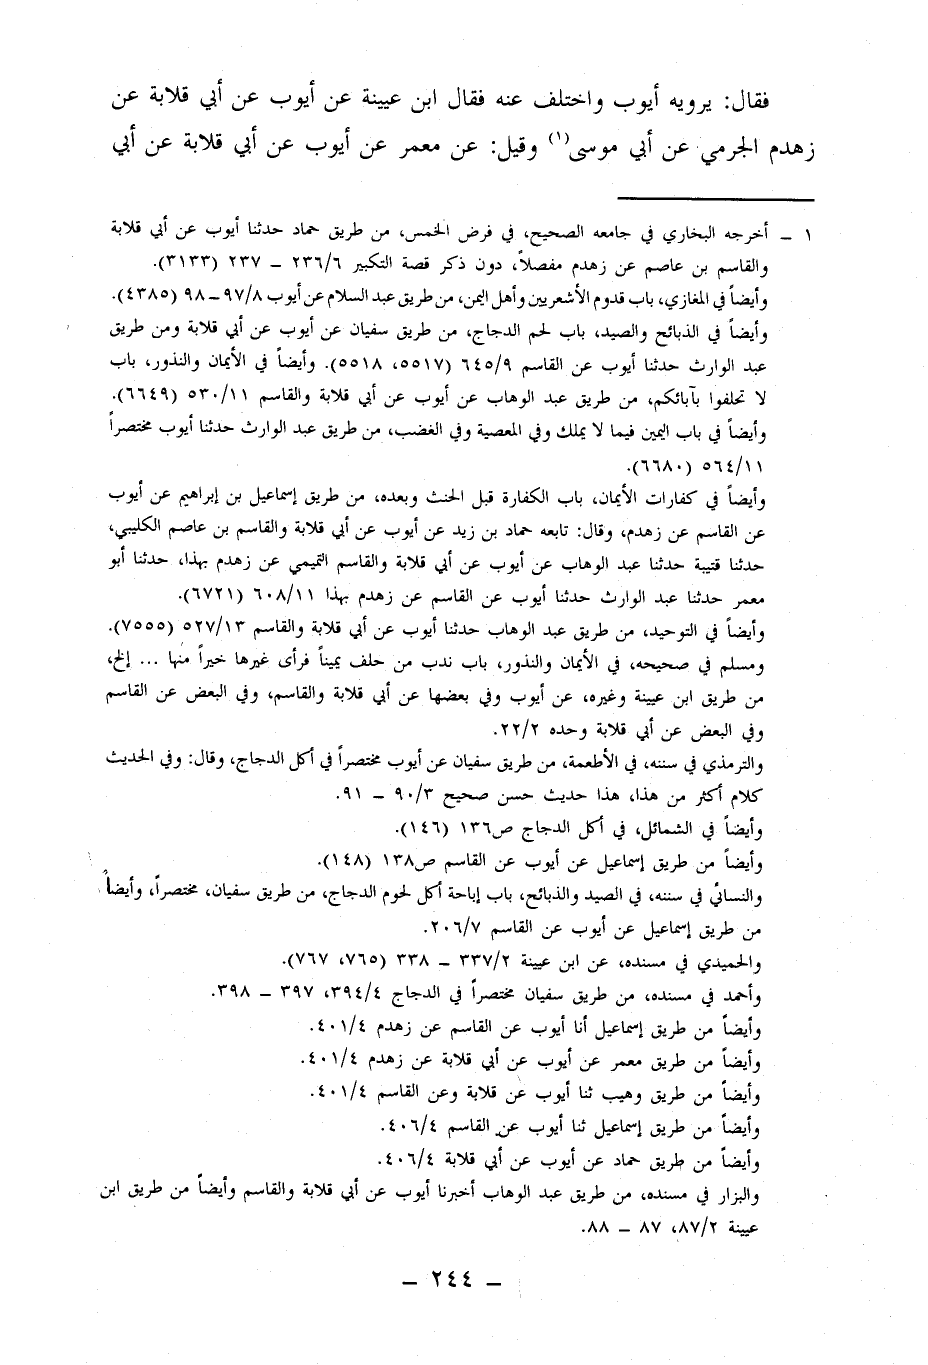 فقال: يرويه أيوب واختلف عنه فقال ابن عيينة عن أيوب عن أبي قلابة عن
زهدم الجرمي عن أبي موسى(١) وقيل: عن معمر عن أيوب عن أبي قلابة عن أبي
١ – أخرجه البخاري في جامعه الصحيح، في فرض الخمس، من طريق حماد حدثنا أيوب عن أبي قلابة
والقاسم بن عاصم عن زهدم مفصلاً، دون ذكر قصة التكبير ٢٣٦/٦ – ٢٣٧ (٣١٣٣).
وأيضاً في المغازي، باب قدوم الأشعريين وأهل اليمن، من طريق عبد السلام عن أيوب ٩٧/٨ – ٩٨ (٤٣٨٥).
وأيضاً في الذبائح والصيد، باب لحم الدجاج، من طريق سفيان عن أيوب عن أبي قلابة ومن طريق
عبد الوارث حدثنا أيوب عن القاسم ٦٤٥/٩ (٥٥١٧، ٥٥١٨). وأيضاً في الأيمان والنذور، باب
لا تحلفوا بآبائكم، من طريق عبد الوهاب عن أيوب عن أبي قلابة والقاسم ٥٣٠/١١ (٦٦٤٩).
وأيضاً في باب اليمين فيما لا يملك وفي المعصية وفي الغضب، من طريق عبد الوارث حدثنا أيوب مختصراً
٥٦٤/١١ (٦٦٨٠).
وأيضاً في كفارات الأيمان، باب الكفارة قبل الحنث وبعده، من طريق إسماعيل بن إبراهيم عن أيوب
عن القاسم عن زهدم، وقال: تابعه حماد بن زيد عن أيوب عن أبي قلابة والقاسم بن عاصم الكليبي،
حدثنا قتيبة حدثنا عبد الوهاب عن أيوب عن أبي قلابة والقاسم التميمي عن زهدم بهذا، حدثنا أبو
معمر حدثنا عبد الوارث حدثنا أيوب عن القاسم عن زهدم بهذا ٦٠٨/١١ (٦٧٢١).
وأيضاً في التوحيد، من طريق عبد الوهاب حدثنا أيوب عن أبي قلابة والقاسم ٥٢٧/١٣ (٧٥٥٥).
ومسلم في صحيحه، في الأيمان والنذور، باب ندب من حلف يميناً فرأى غيرها خيراً منها ... إلخ،
من طريق ابن عيينة وغيره، عن أيوب وفي بعضها عن أبي قلابة والقاسم، وفي البعض عن القاسم
وفي البعض عن أبي قلابة وحده ٢٢/٢.
والترمذي في سننه، في الأطعمة، من طريق سفيان عن أيوب مختصراً في أكل الدجاج، وقال: وفي الحديث
كلام أكثر من هذا، هذا حديث حسن صحيح ٩٠/٣ – ٩١.
وأيضاً في الشمائل، في أكل الدجاج ص١٣٦ (١٤٦).
وأيضاً من طريق إسماعيل عن أيوب عن القاسم ص١٣٨ (١٤٨).
والنسائي في سننه، في الصيد والذبائح، باب إباحة أكل لحوم الدجاج، من طريق سفيان، مختصراً، وأيضاً
من طريق إسماعيل عن أيوب عن القاسم ٢٠٦/٧.
والحميدي في مسنده، عن ابن عيينة ٣٣٧/٢ – ٣٣٨ (٧٦٥، ٧٦٧).
وأحمد في مسنده، من طريق سفيان مختصراً في الدجاج ٣٩٤/٤، ٣٩٧ – ٣٩٨.
وأيضاً من طريق إسماعيل أنا أيوب عن القاسم عن زهدم ٤٠١/٤.
وأيضاً من طريق معمر عن أيوب عن أبي قلابة عن زهدم ٤٠١/٤.
وأيضاً من طريق وهيب ثنا أيوب عن قلابة وعن القاسم ٤٠١/٤.
وأيضاً من طريق إسماعيل ثنا أيوب عن القاسم ٤٠٦/٤.
وأيضاً من طريق حماد عن أيوب عن أبي قلابة ٤٠٦/٤.
والبزار في مسنده، من طريق عبد الوهاب أخبرنا أيوب عن أبي قلابة والقاسم وأيضاً من طريق ابن
عيينة ٨٧/٢، ٨٧ – ٨٨.
– ٢٤٤ –